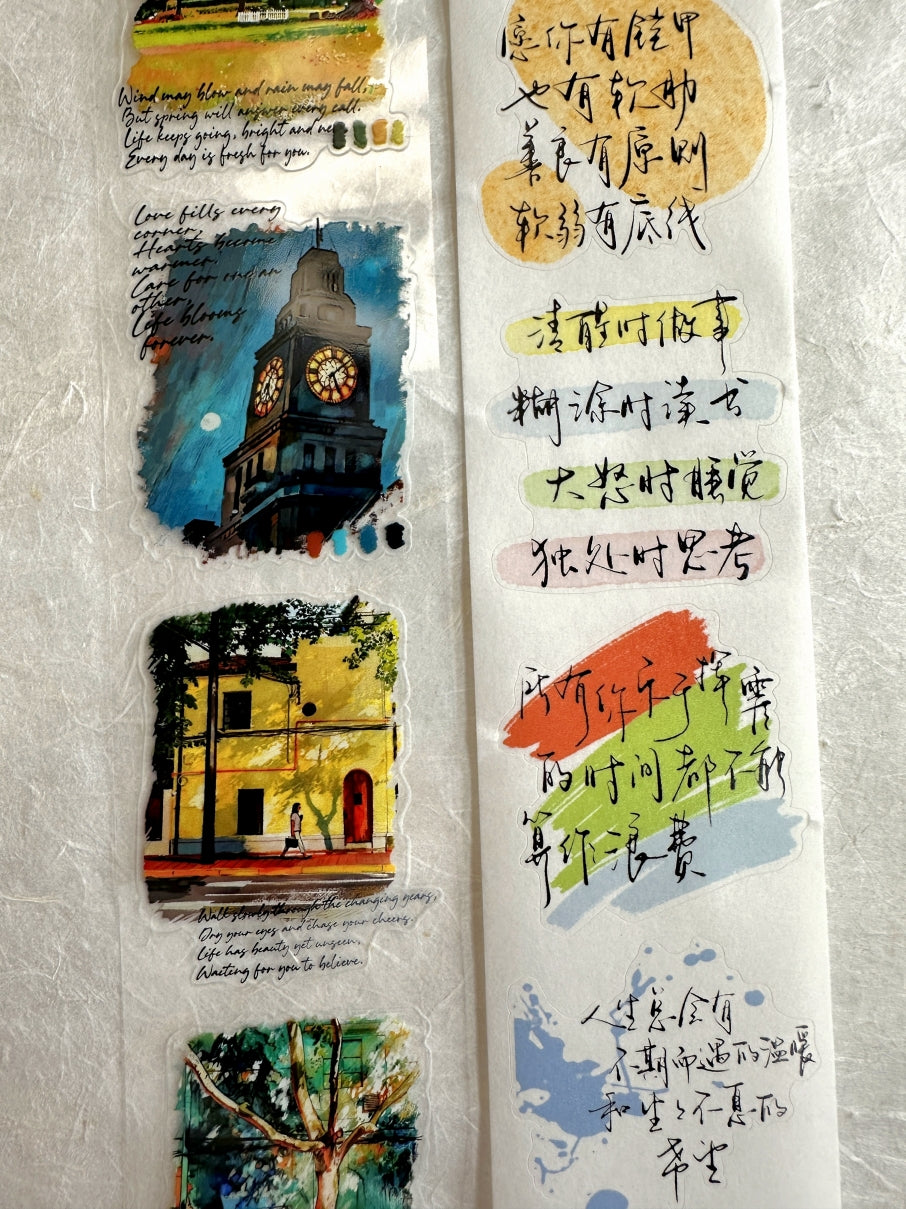 Wind may blow and rain may fall,
But spring will answer every call.
Life keeps going, bright and ne
Every day is fresh for you.
Love fills every
corner,
Hearts become
warmer.
Care for one an
other,
Life blooms
forever.
Walk slowly through the changing years,
Dry your eyes and chase your cheers.
Life has beauty yet unseen,
Waiting for you to believe.
愿你有铠甲
也有软肋
善良有原则
软弱有底线
清醒时做事
糊涂时读书
大怒时睡觉
独处时思考
所有你乐于挥霍
的时间都不能
算作浪费
人生总会有
不期而遇的温暖
和生生不息的
希望